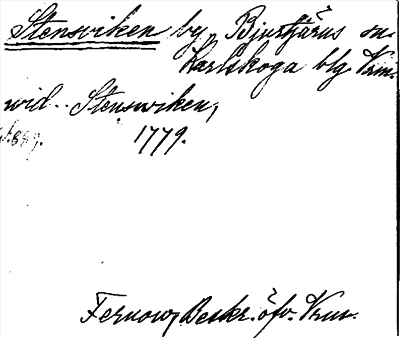 Stensviken by, Bjurtjärns sn.
Karlskoga blg. Vrm.
vid Stensviken,
1779.
Fernow, Beskr. öfv. Vrm.